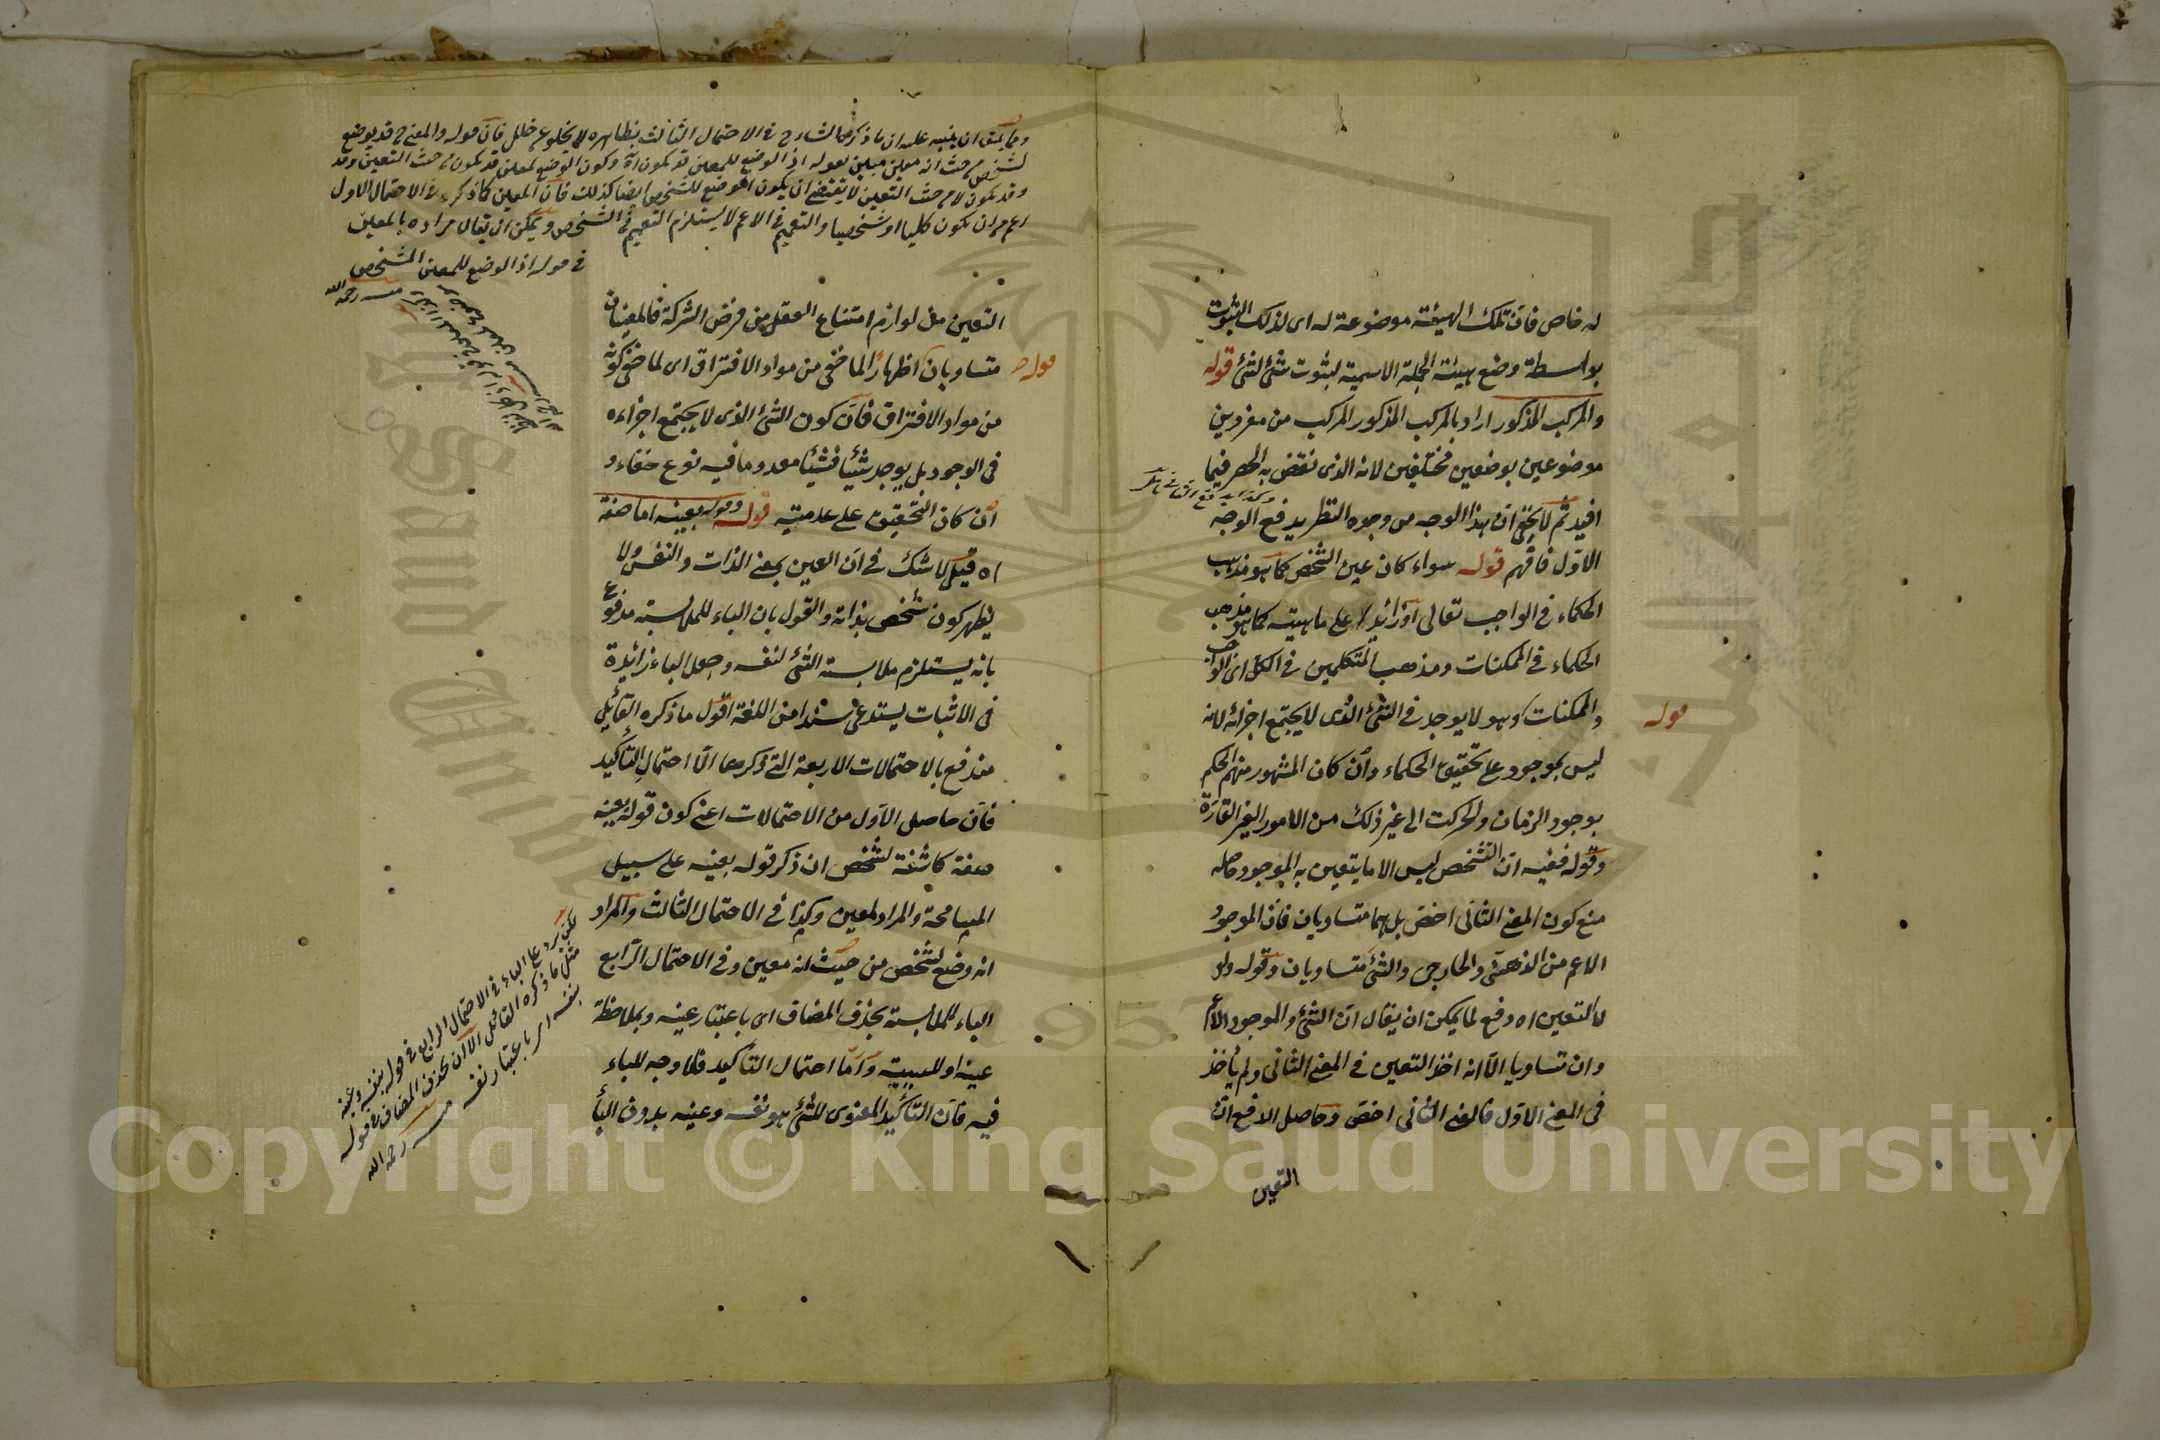 له خاص فان تلك الهيئة موضوعة له اى لذلك الثبوت
بواسطة وضع هيئة الجملة الاسمية لثبوت شئ لشئ قوله
والمركب المذكور اراد بالمركب المذكور المركب من مفردين
موضوعين بوضعين مختلفين لانه الذى نقض به الحصر فيما
افيد ثم لا يخفى ان هذا الوجه من وجوه النظر يدفع الوجه
الاول فافهم قوله سواء كان عين الشخص كما هو مذهب
الحكماء فى الواجب تعالى او زائدا على ماهيته كما هو مذهب
الحكماء فى الممكنات ومذهب المتكلمين فى الكل اى الواجب
والممكنات قوله وهو لا يوجد فى الشئ الذى لا يجتمع اجزائه لانه
ليس بموجود على تحقيق الحكماء وان كان المشهور منهم الحكم
بوجود الزمان والحركت الى غير ذلك من الامور الغير القارة
وقوله ففيه ان التشخص ليس الا ما يتعين به الموجود حاصله
منع كون المعنى الثانى اخص بل هما متساويان فان الموجود
الاعم من الذهنى والخارجى والشئ متساويان وقوله ولو
لا التعين اه دفع لما يمكن ان يقال ان الشئ والموجود الاعم
وان تساويا الا انه اخذ التعين فى المعنى الثانى ولم يأخذ
فى المعنى الاول فالمعنى الثانى اخص وحاصل الدفع ان
التعين
التعين من لوازم امتناع العقل من فرض الشركة فالمعنيان
متساويان قوله اظهار لما خفى من مواد الافتراق اى لما خفى كونه
من مواد الافتراق فان كون الشئ الذى لا يجتمع اجزاءه
فى الوجود بل يوجد شيئا فشيئا معدوما فيه نوع خفاء و
ان كان التحقيق على عدميته قوله وقوله بعينه اما صفة
اه قيل لا شك فى ان العين بمعنى الذات والنفس ولا
يظهر كون شخص بذاته والقول بان الباء للملابسة مدفوع
بانه يستلزم ملابسة الشئ لنفسه وجعل الباء زائدة
فى الاثبات يستدعى سندا من اللغة اقول ما ذكره القائل
مندفع بالاحتمالات الاربعة التى ذكرها الا احتمال التأكيد
فان حاصل الاول من الاحتمالات اعنى كون قوله بعينه
صفة كاشفة لشخص ان ذكر قوله بعينه على سبيل
المسامحة والمراد لمعين وكذا فى الاحتمال الثالث والمراد
انه وضع لشخص من حيث انه معين وفى الاحتمال الرابع
الباء للملابسة بحذف المضاف اى باعتبار عينه وبملاحظة
عينه او للسببية واما احتمال التأكيد فلا وجه للباء
فيه فان التأكيد المعنوى للشئ هو نفسه وعينه بدون الباء
ومما يليق ان ينبه عليه ان ما ذكره الشارح فى الاحتمال الثالث بظاهره لا يخلو عن خلل فان قوله والمعنى ح قد يوضع
لشخص من حيث انه معين مبين بقوله اذ الوضع للمعين قد يكون اه وكون الوضع لمعين قد يكون من حيث التعين وقد
وقد يكون لا من حيث التعين لا يقتضى ان يكون الوضع للشخص ايضا كذلك فان المعين كما ذكره فى الاحتمال الاول
اعم من ان يكون كليا او شخصيا والتعميم فى الاعم لا يستلزم التعميم فى الشخص ويمكن ان يقال مراده بالمعين
فى قوله اذ الوضع للمعين المشخص
منه رحمه الله
لكن يرد على الباء فى الاحتمال الرابع فى قوله بنفسه وعينه
مثل ما ذكره القائل الا ان بحذف المضاف فى قوله
بنفسه اى باعتبار نفسه منه رحمه الله
Copyright © King Saud University
1957